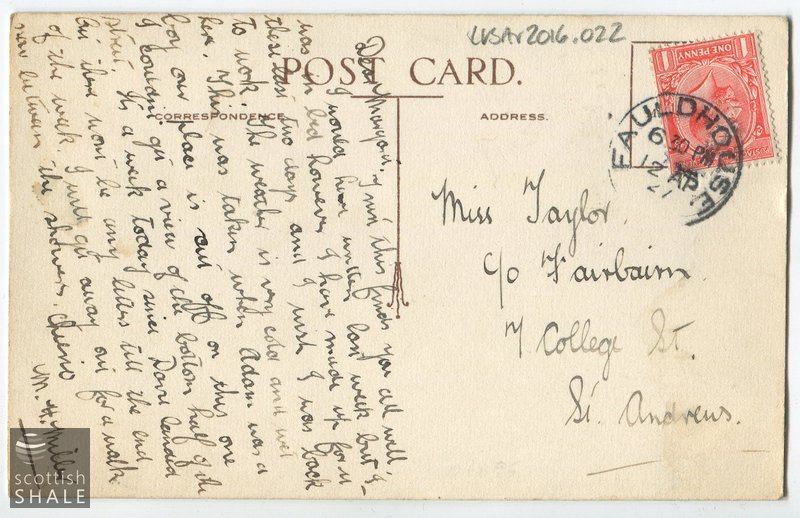 LVSAV2016.022
POST CARD.
CORRESPONDENCE
ADDRESS.
ONE PENNY
FAULDHOUSE
6 30 PM
12 AP
Miss Taylor.
c/o Fairbairn.
7 College St.
St. Andrews.
Dear Margaret, I hope this finds you all well.
I would have written last week but I
was in bed however I have made up for it
these last two days and I wish I was back
to work. The weather is very cold and wet
here. This was taken when Adam was a
boy our place is cut off on this one
I couldn't get a view of the bottom half of the
street. It's a week today since David landed
but there wont be any letters till the end
of the week. I must get away out for a walk
now between the showers. Cheerio
M. H. Miller
scottish
SHALE